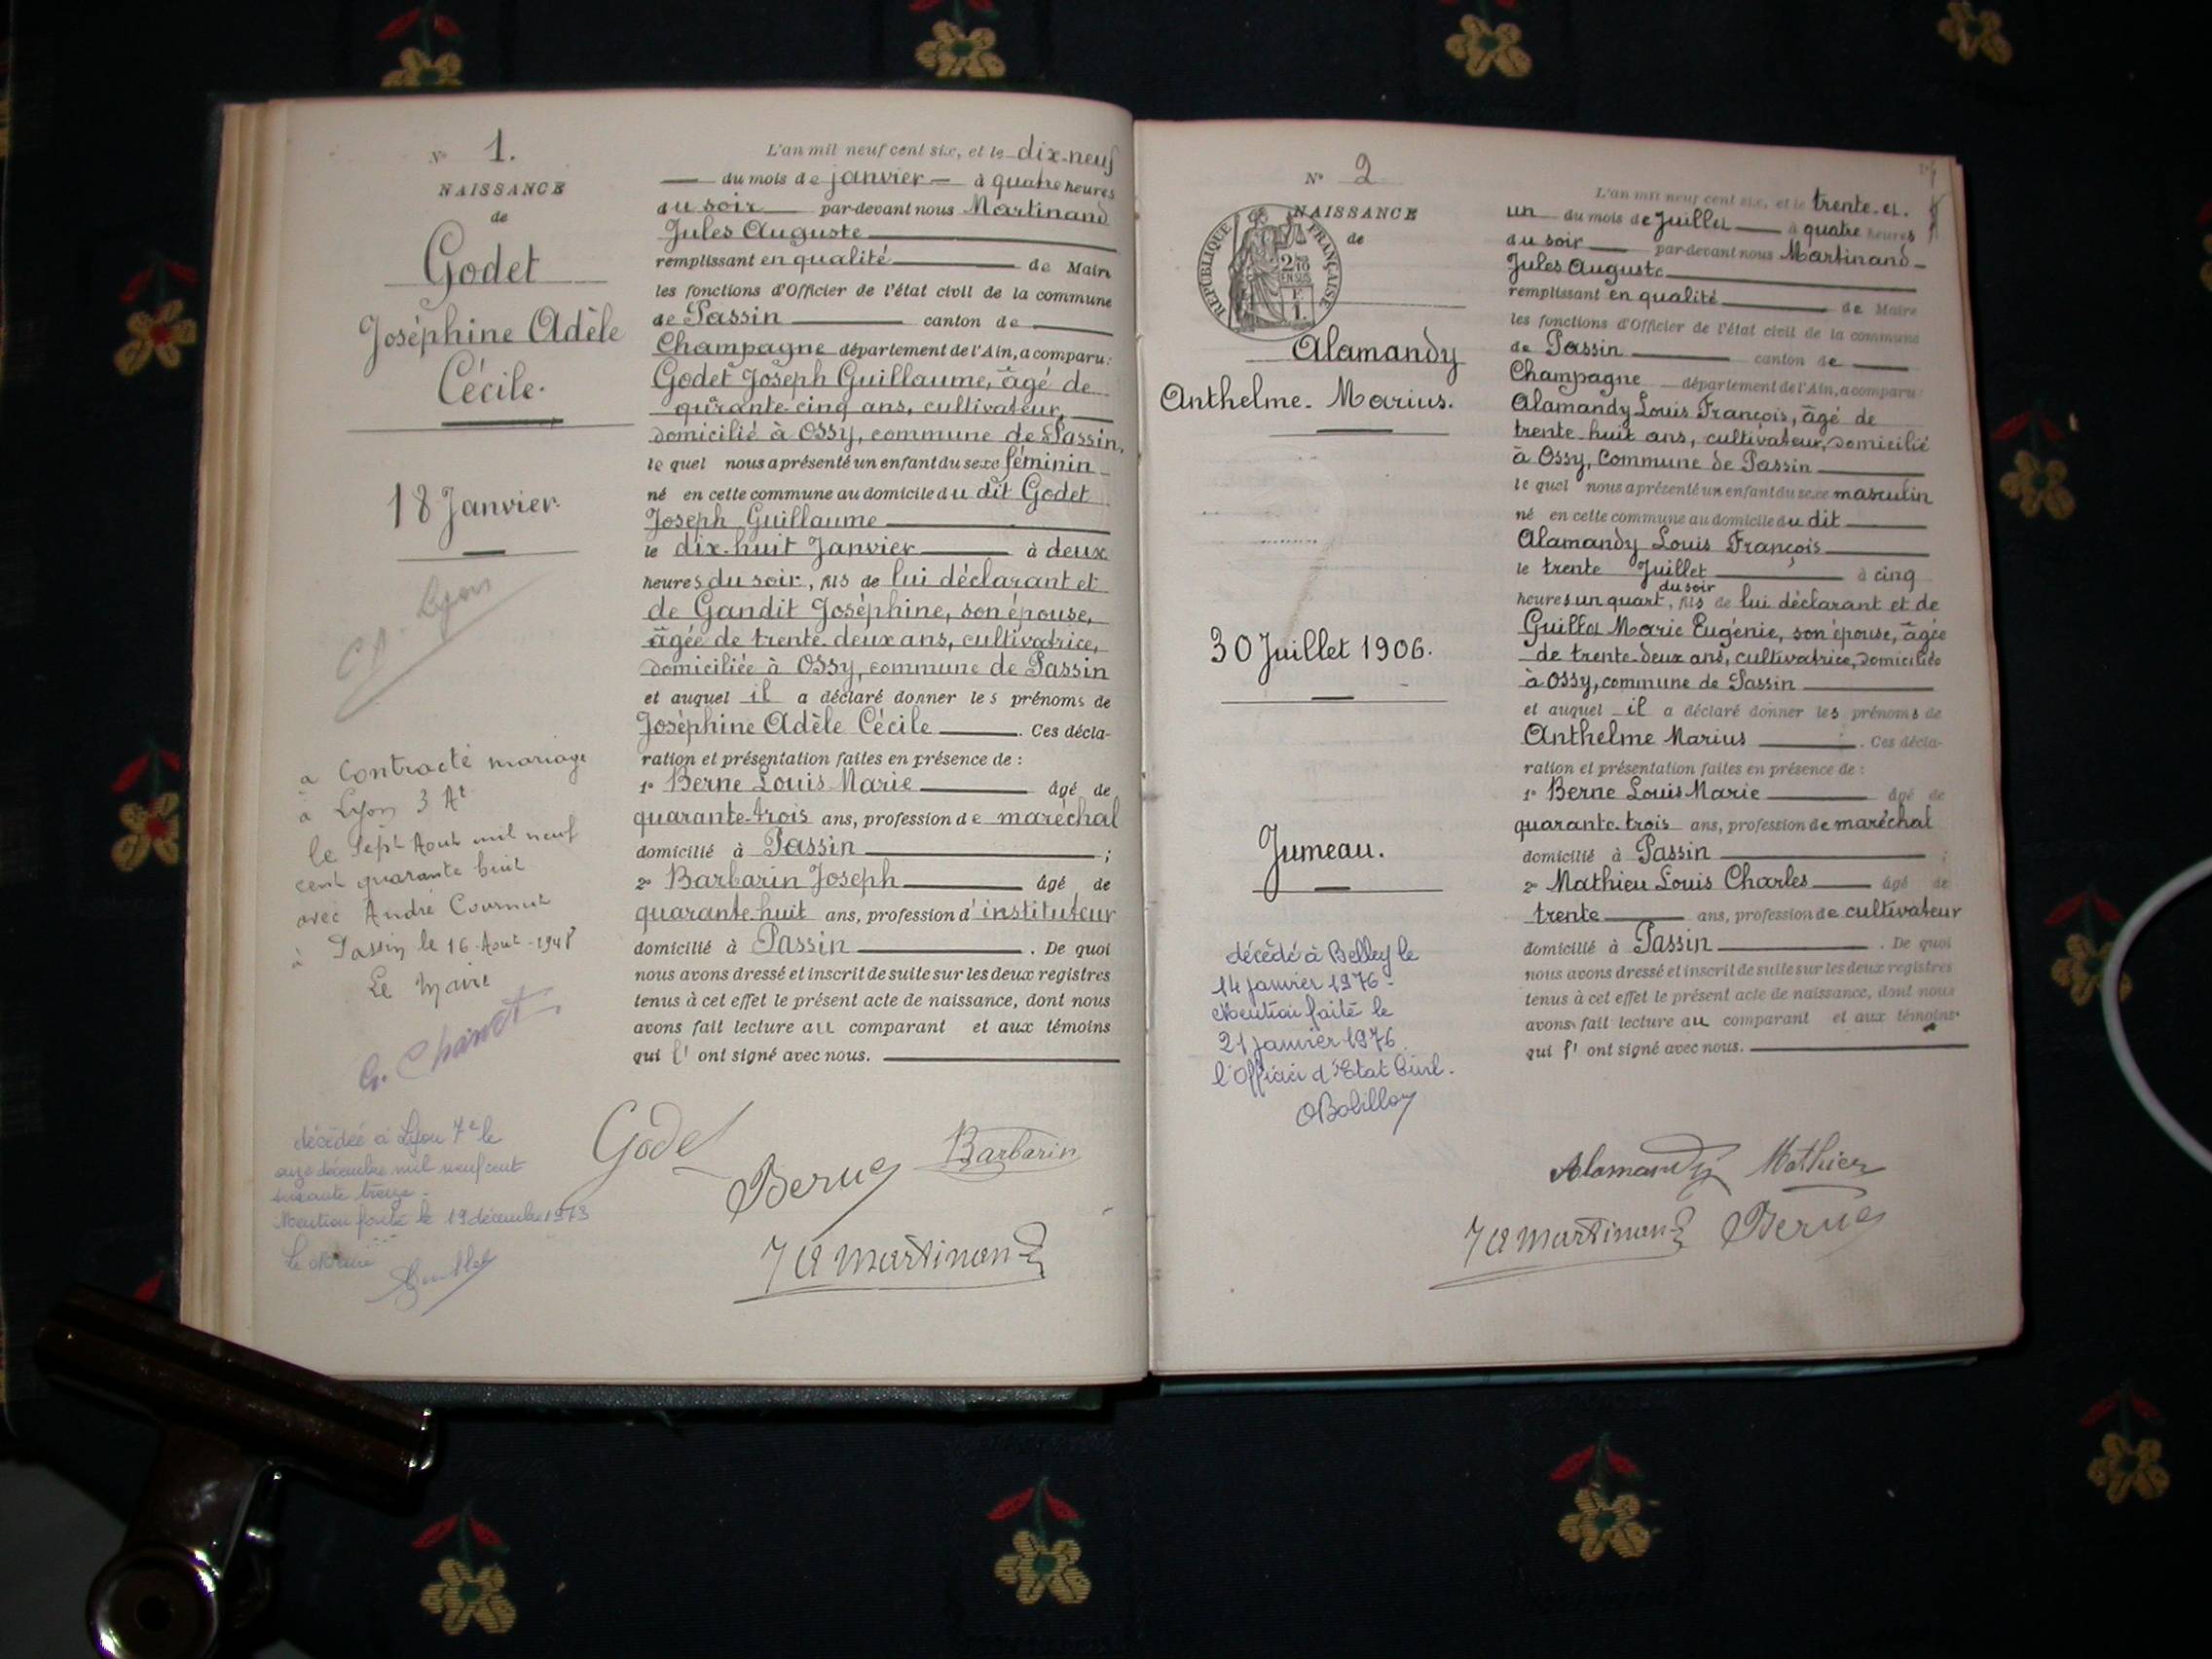 N° 1.
NAISSANCE
de
Godet
Joséphine Adèle
Cécile.
18 Janvier.
Lyon
a Contracté mariage
à Lyon 3 At
le Sept Aout mil neuf
cent quarante huit
avec André
à Passin le 16 Aout 1948
Le Maire
G. Chanet
décédée à Lyon 7e le
onze décembre mil neuf cent
soixante treize.
Mention faite le 19 décembre 1973
Le Maire
L'an mil neuf cent six, et le dix-neuf
du mois de janvier à quatre heures
du soir par-devant nous Martinand
Jules Auguste
remplissant en qualité de Maire
les fonctions d'Officier de l'état civil de la commune
de Passin canton de
Champagne département de l'Ain, a comparu:
Godet Joseph Guillaume, âgé de
qurante-cinq ans, cultivateur,
domicilié à Ossy, commune de Passin,
le quel nous a présenté un enfant du sexe féminin
né en cette commune au domicile du dit Godet
Joseph Guillaume
le dix-huit Janvier à deux
heures du soir, fils de lui déclarant et
de Gandit Joséphine, son épouse,
âgée de trente-deux ans, cultivatrice,
domiciliée à Ossy, commune de Passin
et auquel il a déclaré donner les prénoms de
Joséphine Adèle Cécile. Ces décla-
ration et présentation faites en présence de :
1° Berne Louis Marie âgé de
quarante-trois ans, profession de maréchal
domicilié à Passin ;
2° Barbarin Joseph âgé de
quarante-huit ans, profession d'instituteur
domicilié à Passin. De quoi
nous avons dressé et inscrit de suite sur les deux registres
tenus à cet effet le présent acte de naissance, dont nous
avons fait lecture au comparant et aux témoins
qui l' ont signé avec nous.
Godet
Berne
Barbarin
JA Martinand
N° 2
NAISSANCE
de
RÉPUBLIQUE FRANÇAISE
2/10
EN SUS
F
1.
Alamandy
Anthelme-Marius.
30 Juillet 1906.
Jumeau.
décédé à Belley le
14 janvier 1976-
Mention faite le
21 janvier 1976
l'Officier d'Etat Civil.
L'an mil neuf cent six, et le trente-et-
un du mois de Juillet à quatre heures
du soir par-devant nous Martinand
Jules Auguste
remplissant en qualité de Maire
les fonctions d'Officier de l'état civil de la commune
de Passin canton de
Champagne département de l'Ain, a comparu:
Alamandy Louis François, âgé de
trente-huit ans, cultivateur, domicilié
à Ossy, Commune de Passin
le quel nous a présenté un enfant du sexe masculin
né en cette commune au domicile du dit
Alamandy Louis François
le trente Juillet à cinq
du soir
heures un quart, fils de lui déclarant et de
Marie Eugénie, son épouse, âgée
de trente-deux ans, cultivatrice, domiciliée
à Ossy, commune de Passin
et auquel il a déclaré donner les prénoms de
Anthelme Marius. Ces décla-
ration et présentation faites en présence de :
1° Berne Louis Marie âgé de
quarante-trois ans, profession de maréchal
domicilié à Passin ;
2° Mathieu Louis Charles âgé de
trente ans, profession de cultivateur
domicilié à Passin. De quoi
nous avons dressé et inscrit de suite sur les deux registres
tenus à cet effet le présent acte de naissance, dont nous
avons fait lecture au comparant et aux témoins
qui l' ont signé avec nous.
Alamandy Mathieu
JA Martinand Berne